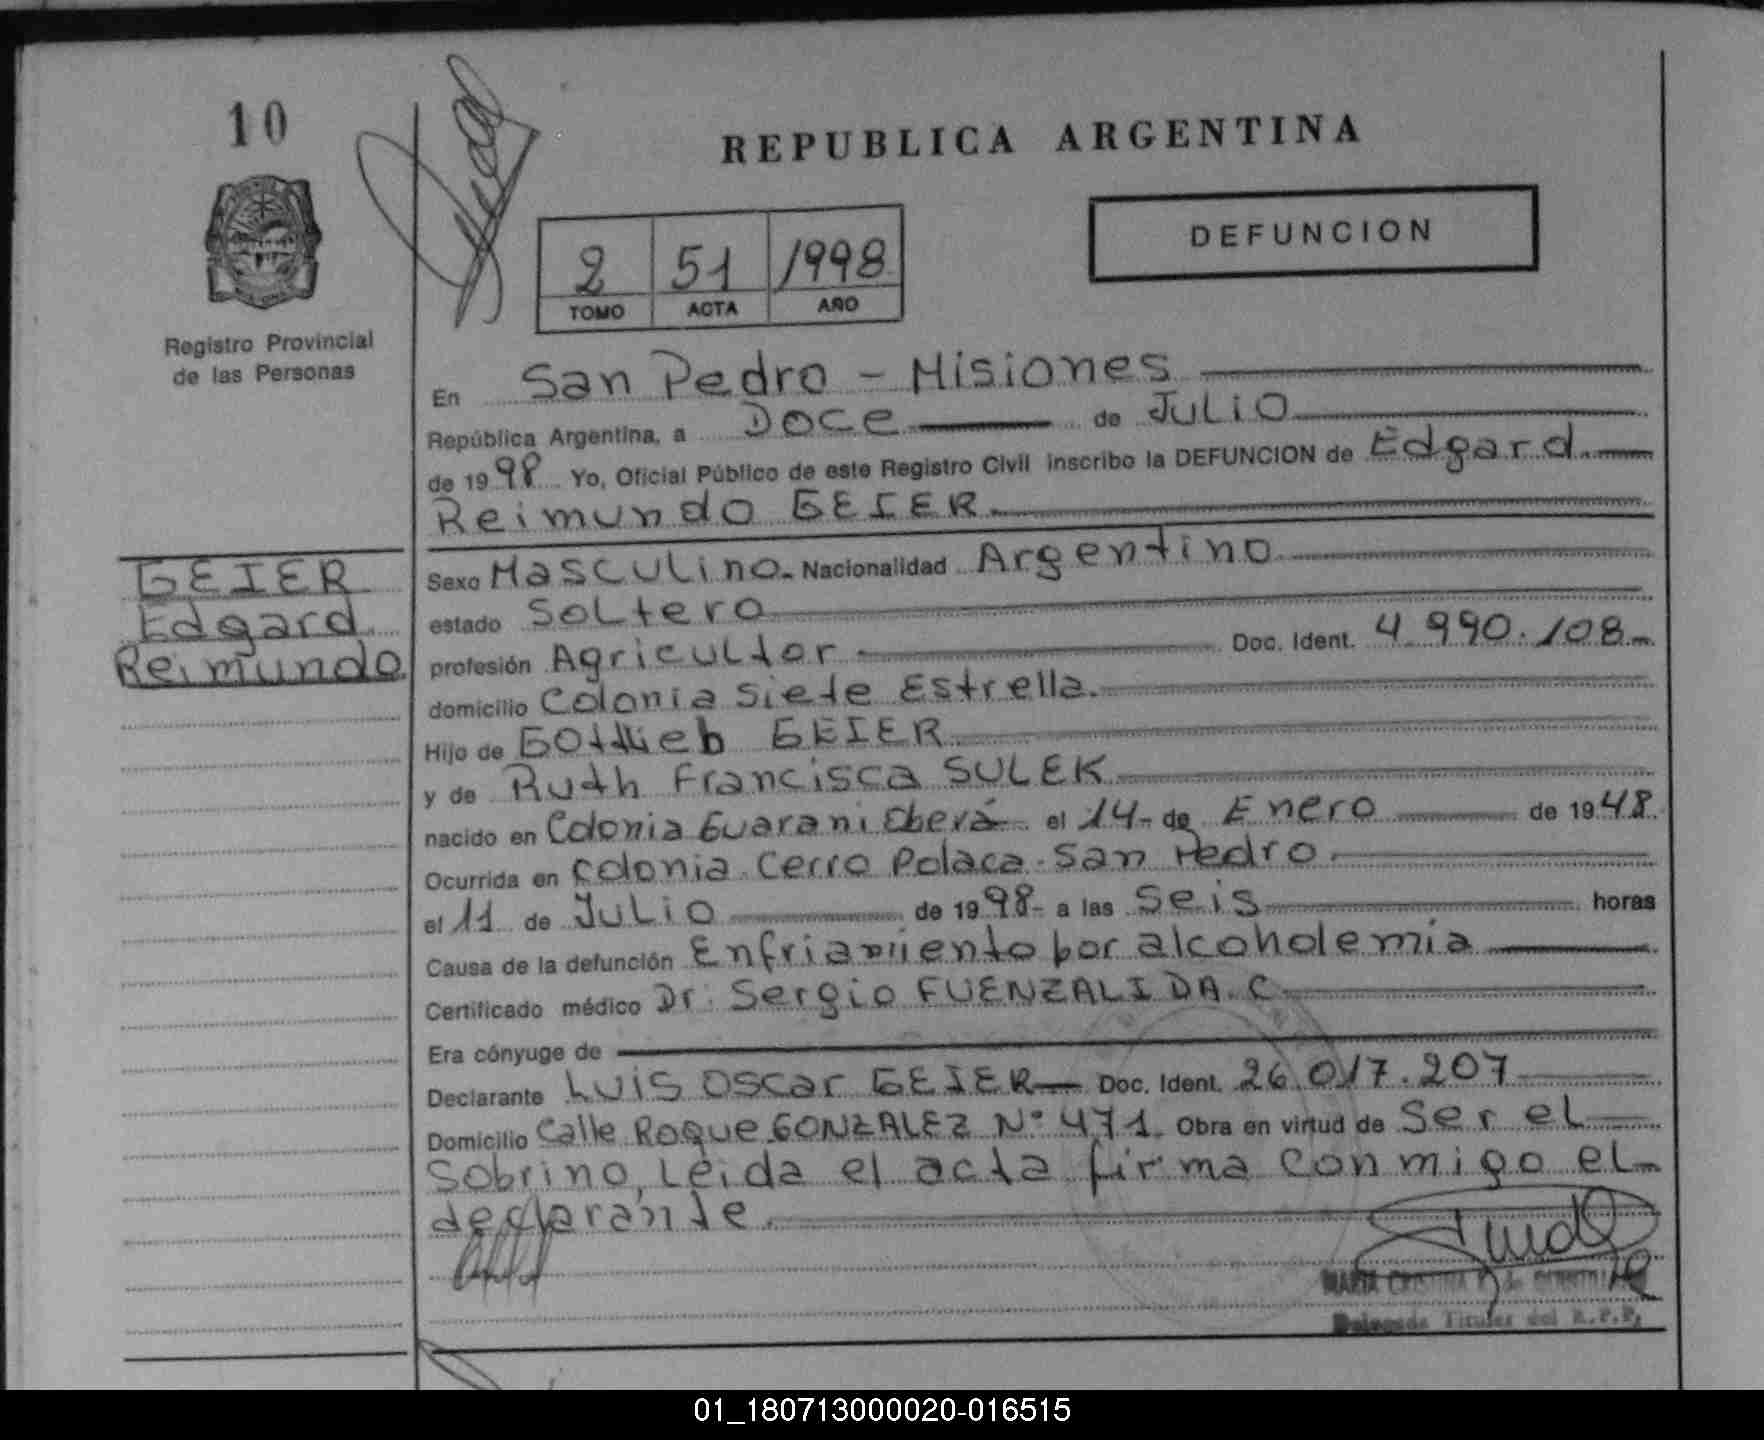 10
REPUBLICA ARGENTINA
DEFUNCION
2 51 1998
TOMO ACTA AÑO
Registro Provincial
de las Personas
En San Pedro - Misiones
República Argentina, a Doce de Julio
de 1998 Yo, Oficial Público de este Registro Civil inscribo la DEFUNCION de Edgard
Reimundo GEIER
GEIER
Edgard
Reimundo
Sexo Masculino. Nacionalidad Argentino
estado Soltero
profesión Agricultor Doc. Ident. 4.990.108
domicilio Colonia Siete Estrella.
Hijo de Gottlieb GEIER
y de Ruth Francisca SULEK
nacido en Colonia Guarani Oberá el 14 de Enero de 1948.
Ocurrida en Colonia Cerro Polaca - San Pedro
el 11 de Julio de 1998 a las Seis horas
Causa de la defunción Enfriamiento por alcoholemia
Certificado médico Dr. Sergio FUENZALIDA. C
Era cónyuge de
Declarante Luis Oscar GEIER Doc. Ident. 26.017.207
Domicilio Calle Roque GONZALEZ N° 471. Obra en virtud de Ser el
Sobrino, Leida el acta firma conmigo el
declarante.
MARIA CRISTINA
Delegada Titular del R.P.P.
01_180713000020-016515